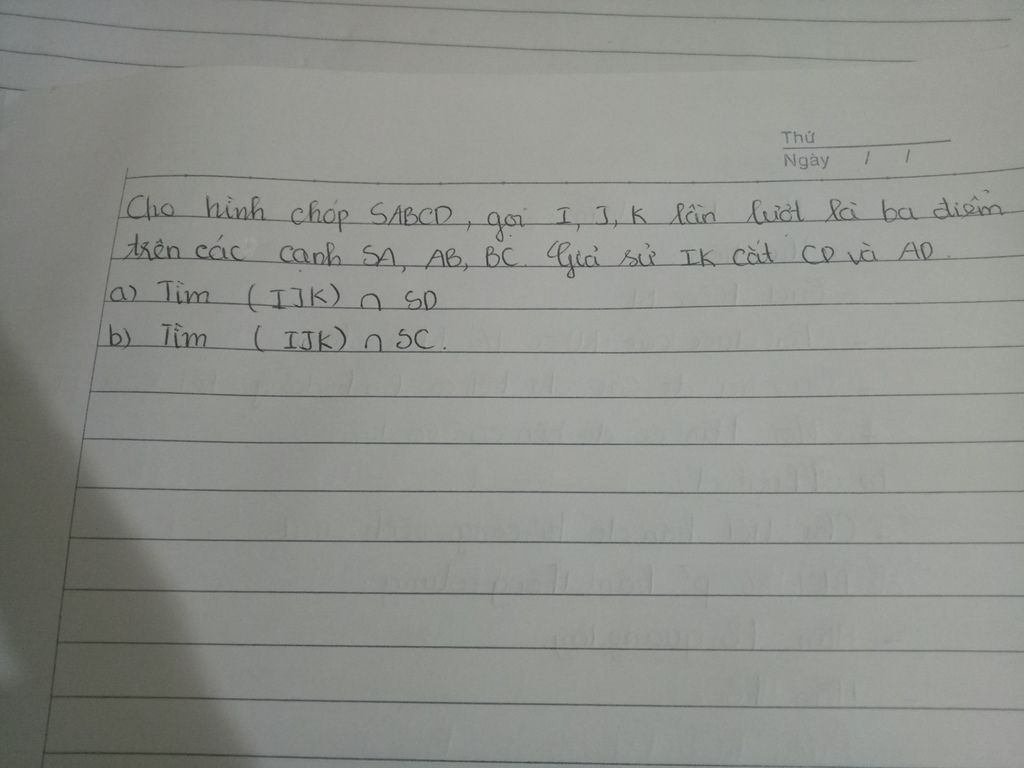 Thứ
Ngày / /
Cho hình chóp SABCD, gọi I, J, K lần lượt là ba điểm
trên các cạnh SA, AB, BC. Giả sử IK cắt CD và AD.
a) Tìm (IJK) ∩ SD
b) Tìm (IJK) ∩ SC.